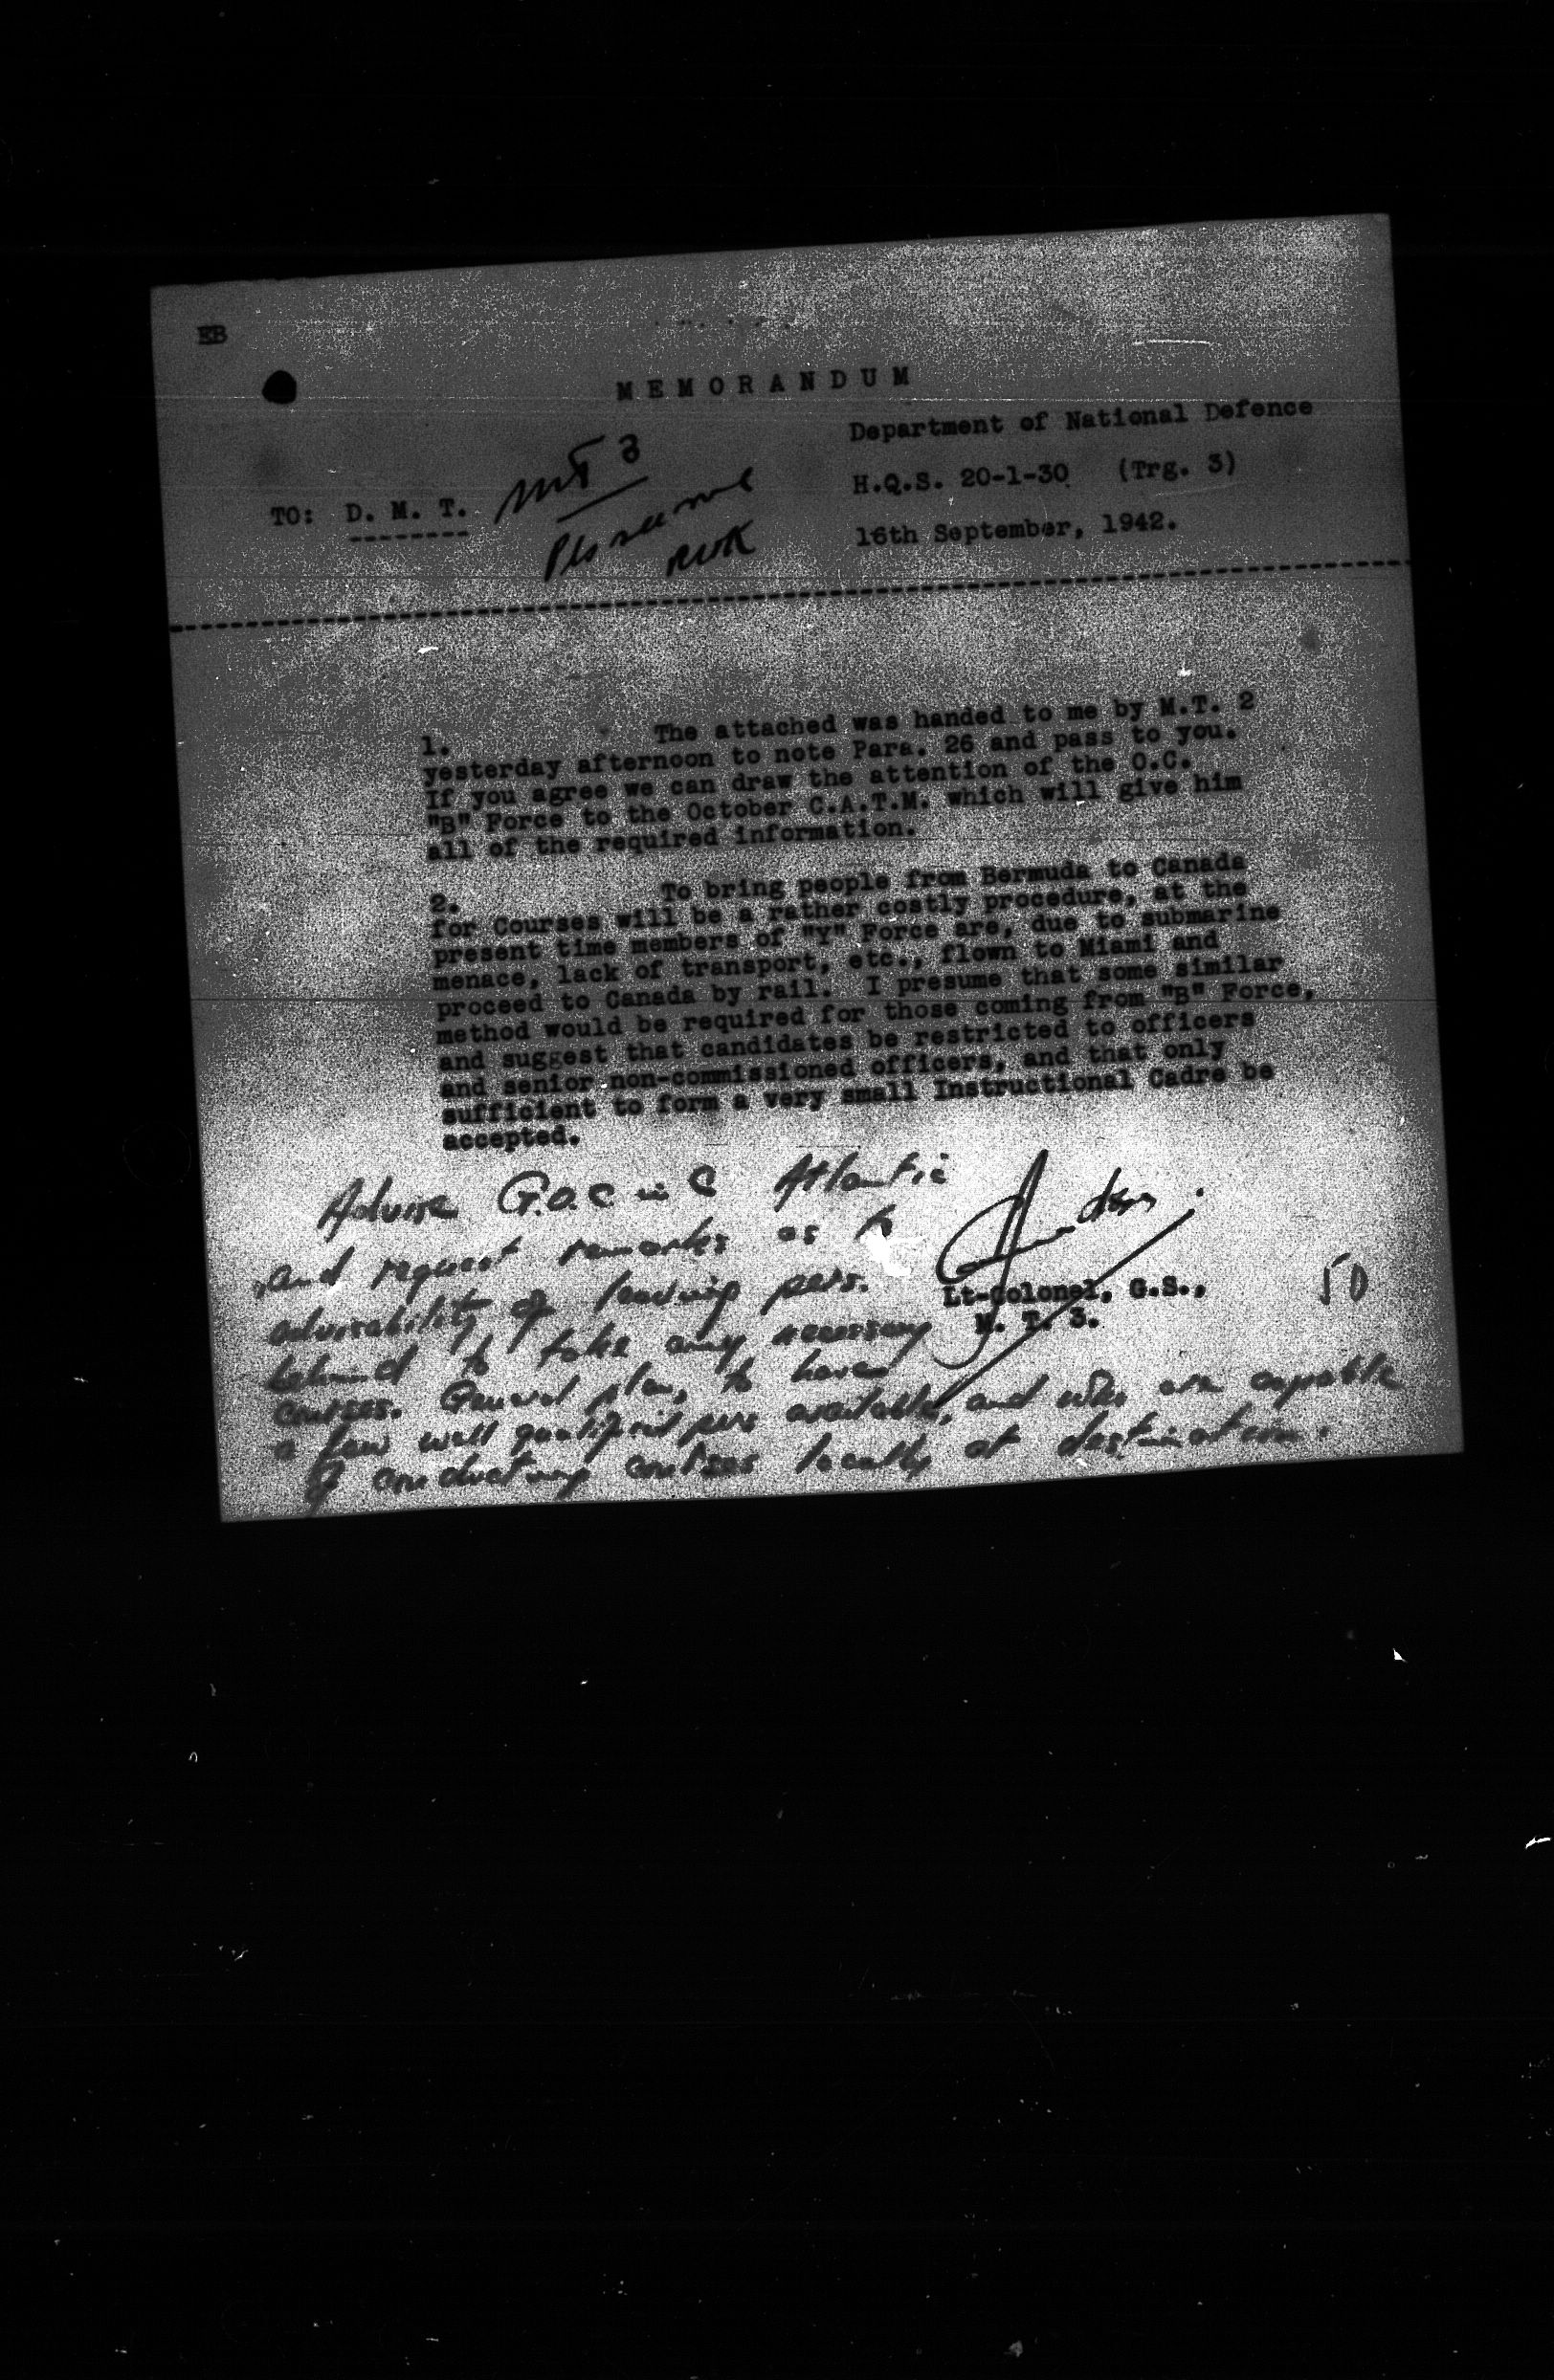 EB
MEMORANDUM
Department of National Defence
H.Q.S. 20-1-30 (Trg. 3)
16th September, 1942.
TO: D. M. T.
MT 3
Pls see me
RWK
1. The attached was handed to me by M.T. 2
yesterday afternoon to note Para. 26 and pass to you.
If you agree we can draw the attention of the O.C.
"B" Force to the October C.A.T.M. which will give him
all of the required information.
2. To bring people from Bermuda to Canada
for Courses will be a rather costly procedure, at the
present time members of "Y" Force are, due to submarine
menace, lack of transport, etc., flown to Miami and
proceed to Canada by rail. I presume that some similar
method would be required for those coming from "B" Force,
and suggest that candidates be restricted to officers
and senior non-commissioned officers, and that only
sufficient to form a very small Instructional Cadre be
accepted.
Advise G.O.C in C Atlantic
and request remarks as to
advisability of leaving pers.
behind to take any necessary
courses. General plan, to have
a few well qualified pers available, and who are capable
of conducting courses locally at destination.
Lt-Colonel, G.S.,
M. T. 3.
50